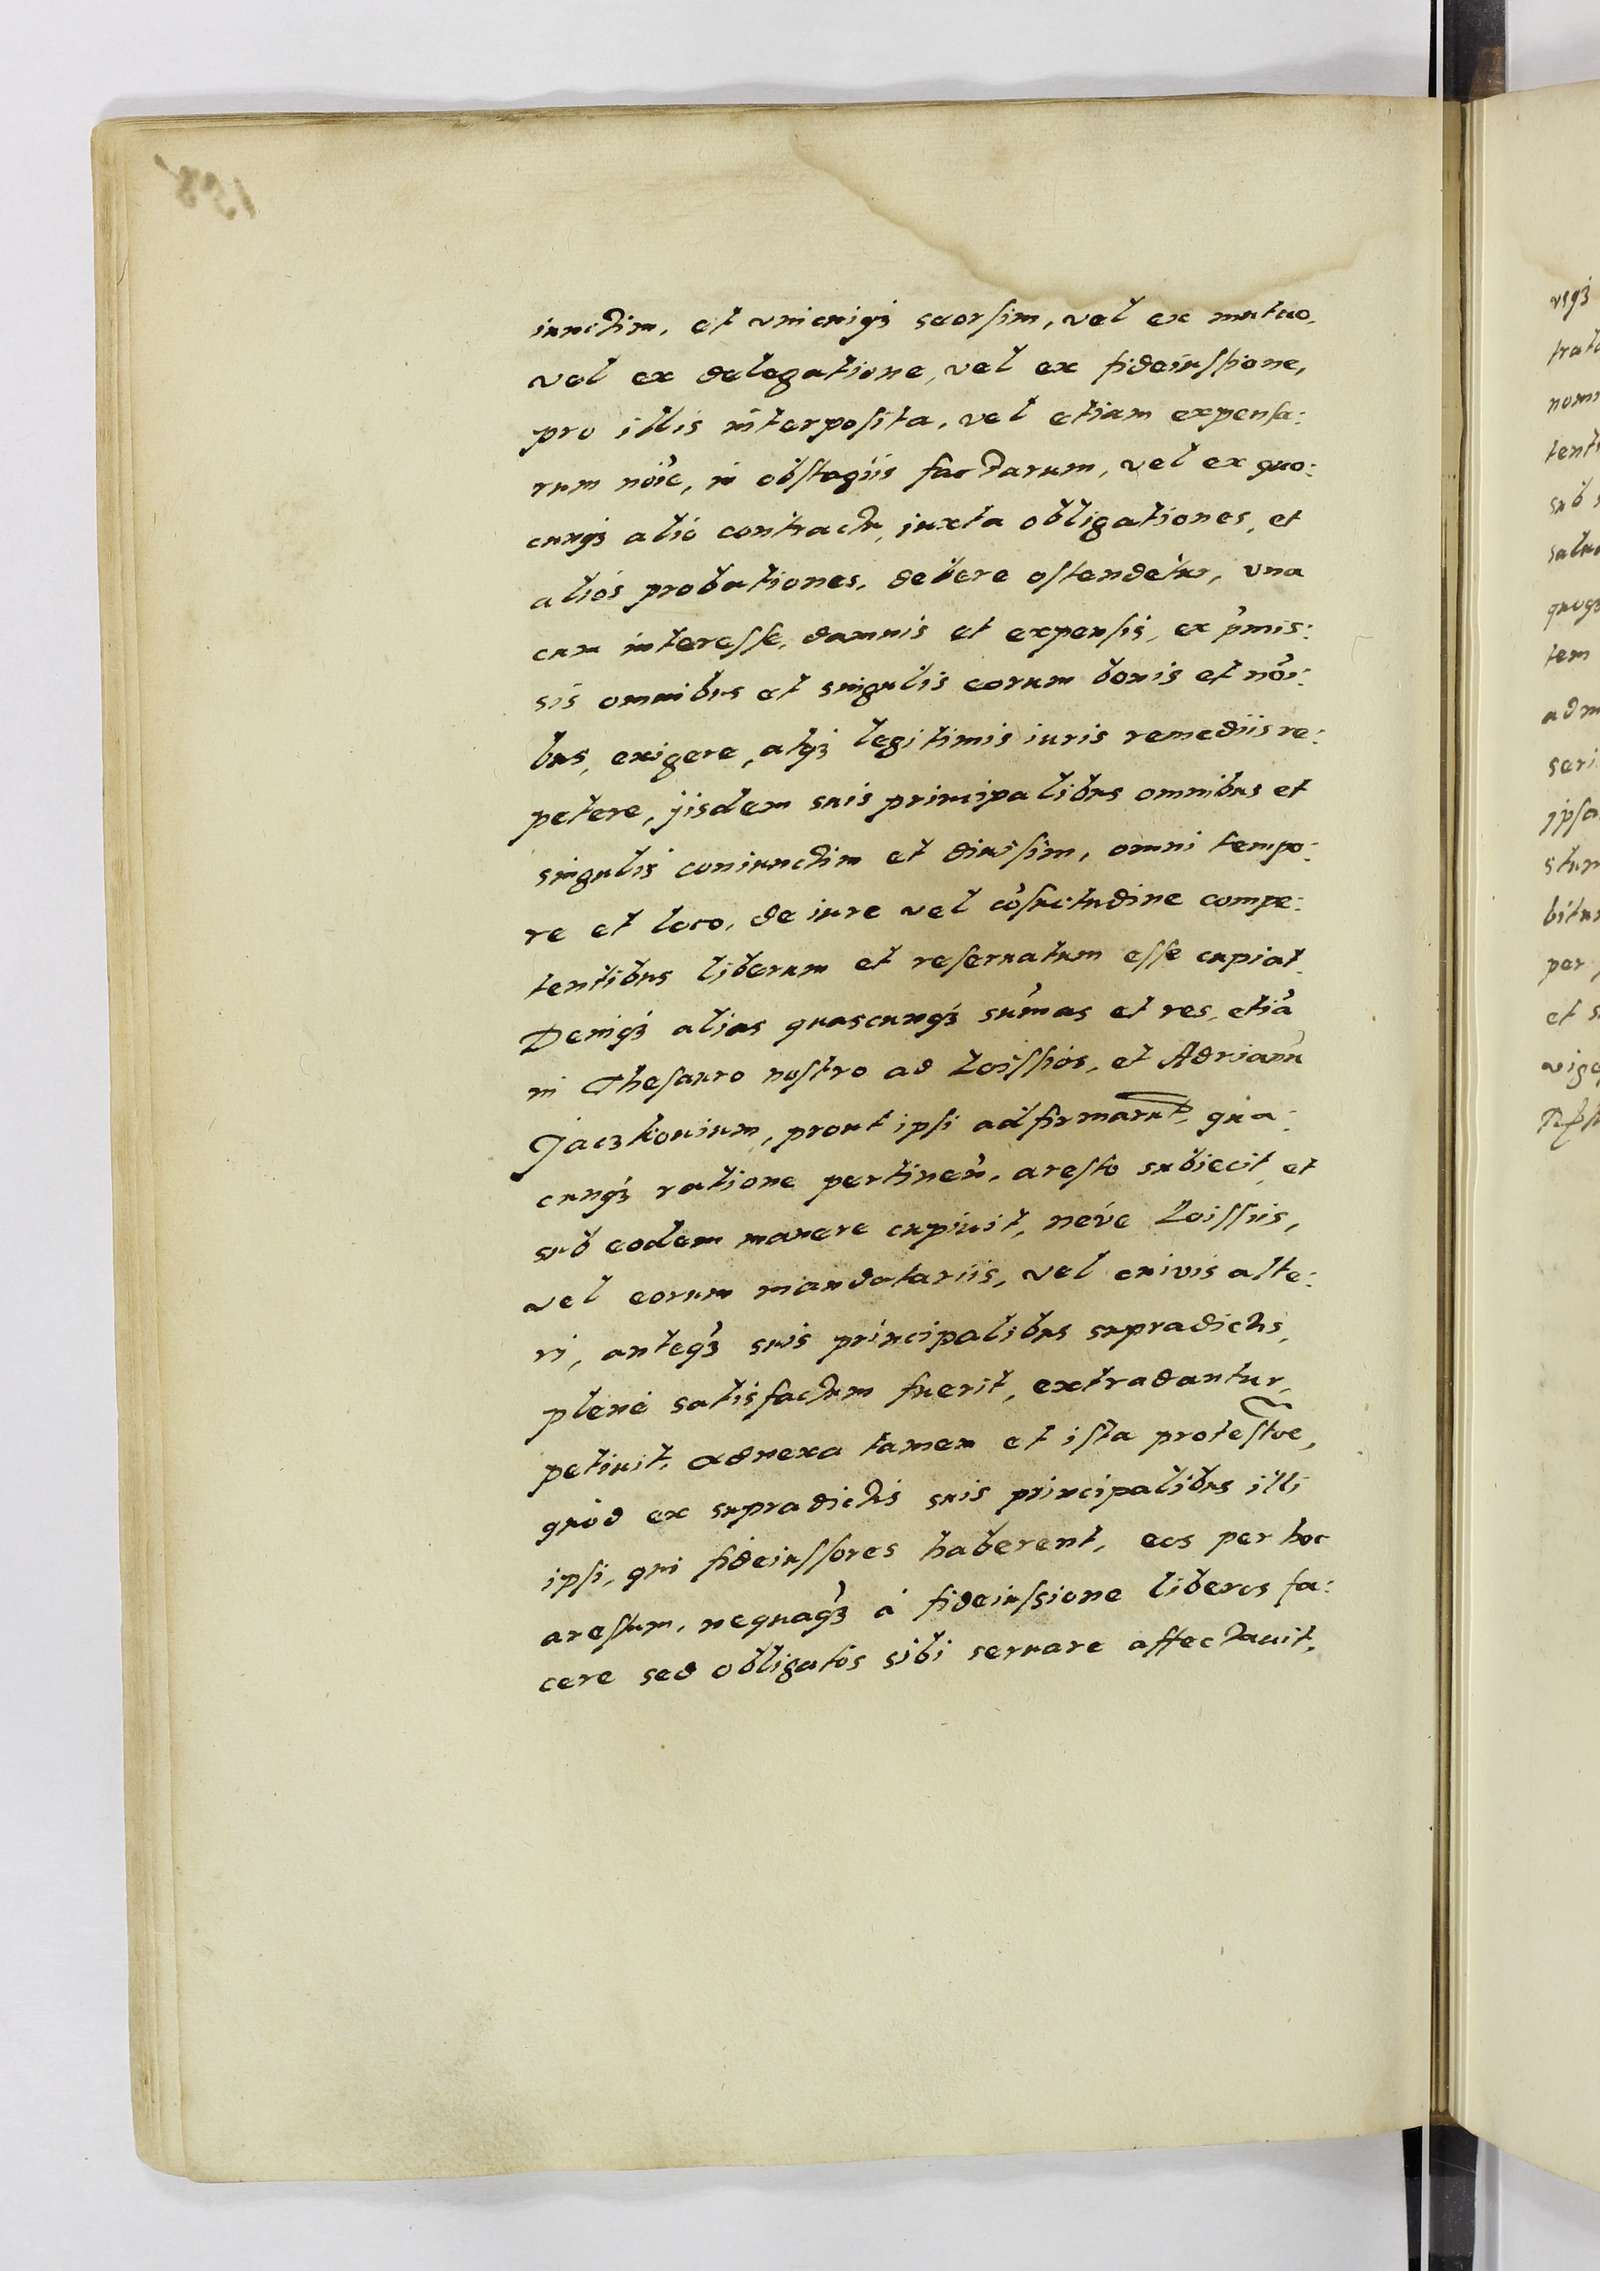 iunctim, et vnicuiqȝ seorsim, vel ex mutuo,
vel ex delegatione, vel ex fideiussione,
pro illis interposita, vel etiam expensa:
rum nõie, in obstagiis factarum, vel ex quo:
cunqȝ alio contractu, iuxta obligationes, et
aliós probationes, debere ostendetur, vna
cum interesse, damnis et expensis, ex p̃mis:
sis omnibus et singulis eorum bonis et nõi:
bus, exigere, atqȝ legitimis iuris remediis re:
petere, ijsdem suis principalibus omnibus et
singulis coniunctim et diuisim, omni tempo:
re et loco, de iure vel cõsuetudine compe:
tentibus liberum et reseruatum esse cupiat.
Deniqȝ alias quascunqȝ sum̃as et res, etiã
in Thesauro nostro ad Loissios, et Adrianũ
Jaczkouium, prout ipsi adfirmarũt, qua:
cunqȝ ratione pertineñ, aresto subiecit, et
sub eodem manere cupiuit, neve Loissiis,
vel eorum mandatariis, vel cuivis alte:
ri, anteqȝ suis principalibus supradictis,
plenè satisfactum fuerit, extradantur,
petiuit. adnexa tamen et ista protestõe,
quòd ex supradictis suis principalibus illi
ipsi, qui fideiussores haberent, eos per hoc
arestum, nequaqȝ à fideiussione liberos fa:
cere sed obligatos sibi seruare affectauit.